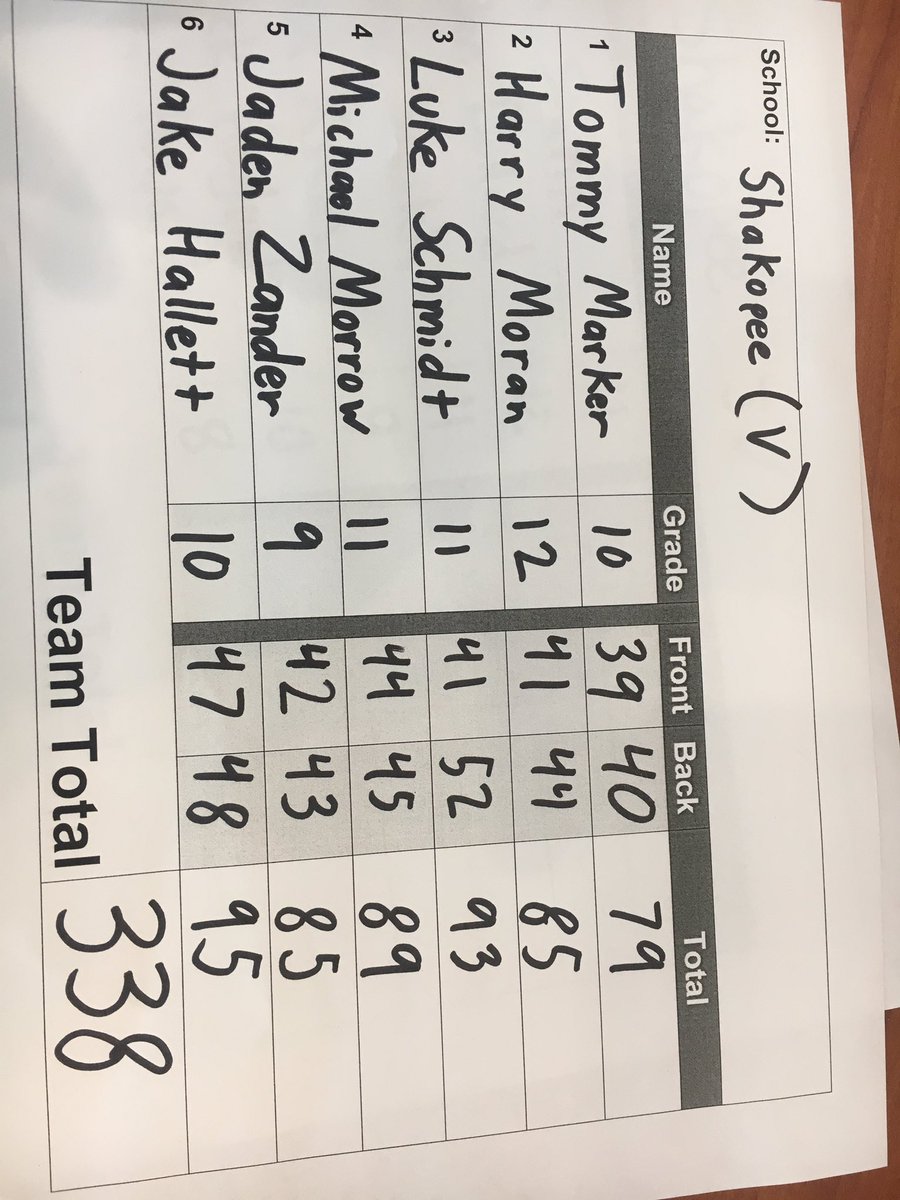 School: Shakopee (V)
Name Grade Front Back Total
1 Tommy Marker 10 39 40 79
2 Harry Moran 12 41 44 85
3 Luke Schmidt 11 41 52 93
4 Michael Morrow 11 44 45 89
5 Jaden Zander 9 42 43 85
6 Jake Hallett 10 47 48 95
Team Total 338